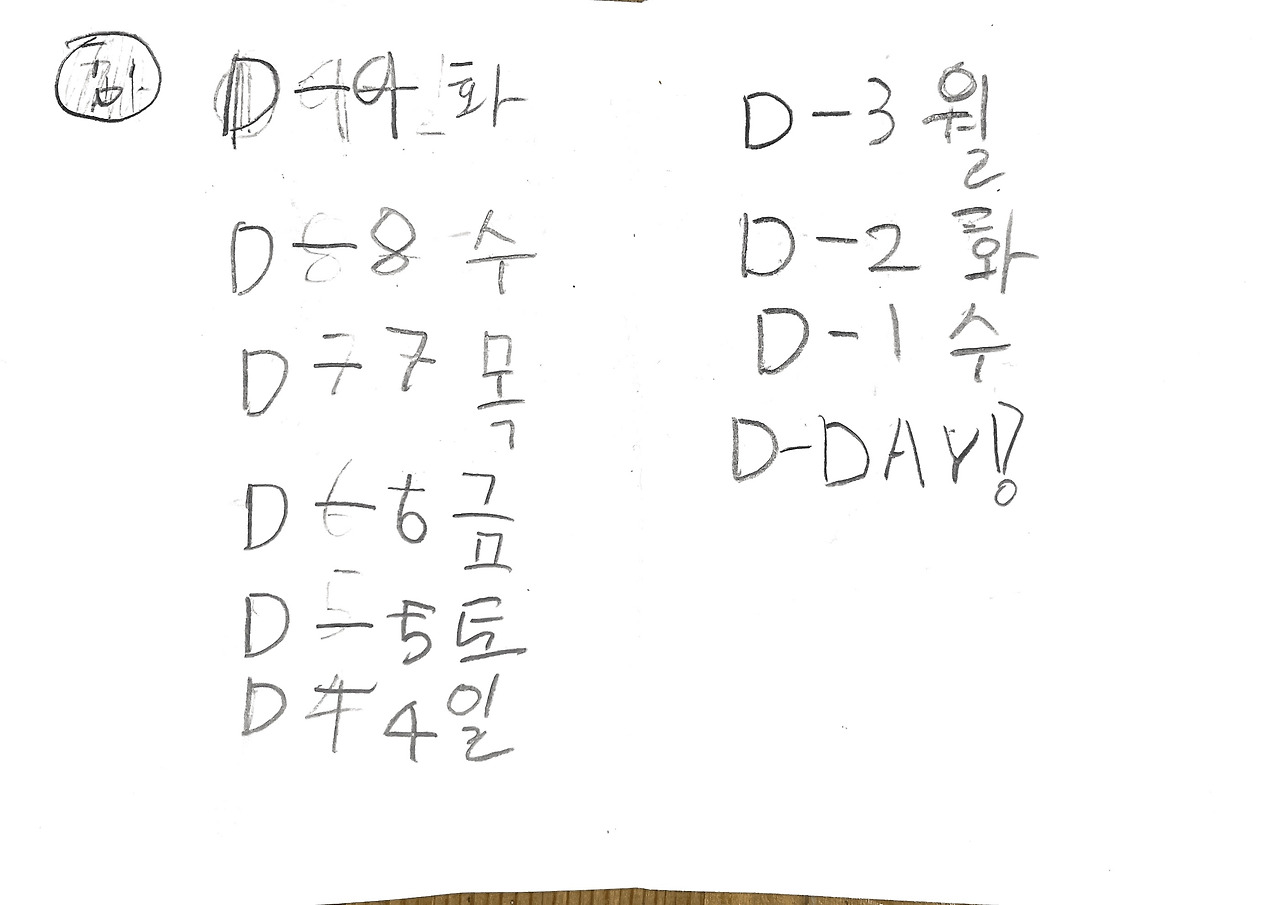 D-9 화
D-8 수
D-7 목
D-6 금
D-5 토
D-4 일
D-3 월
D-2 화
D-1 수
D-DAY!